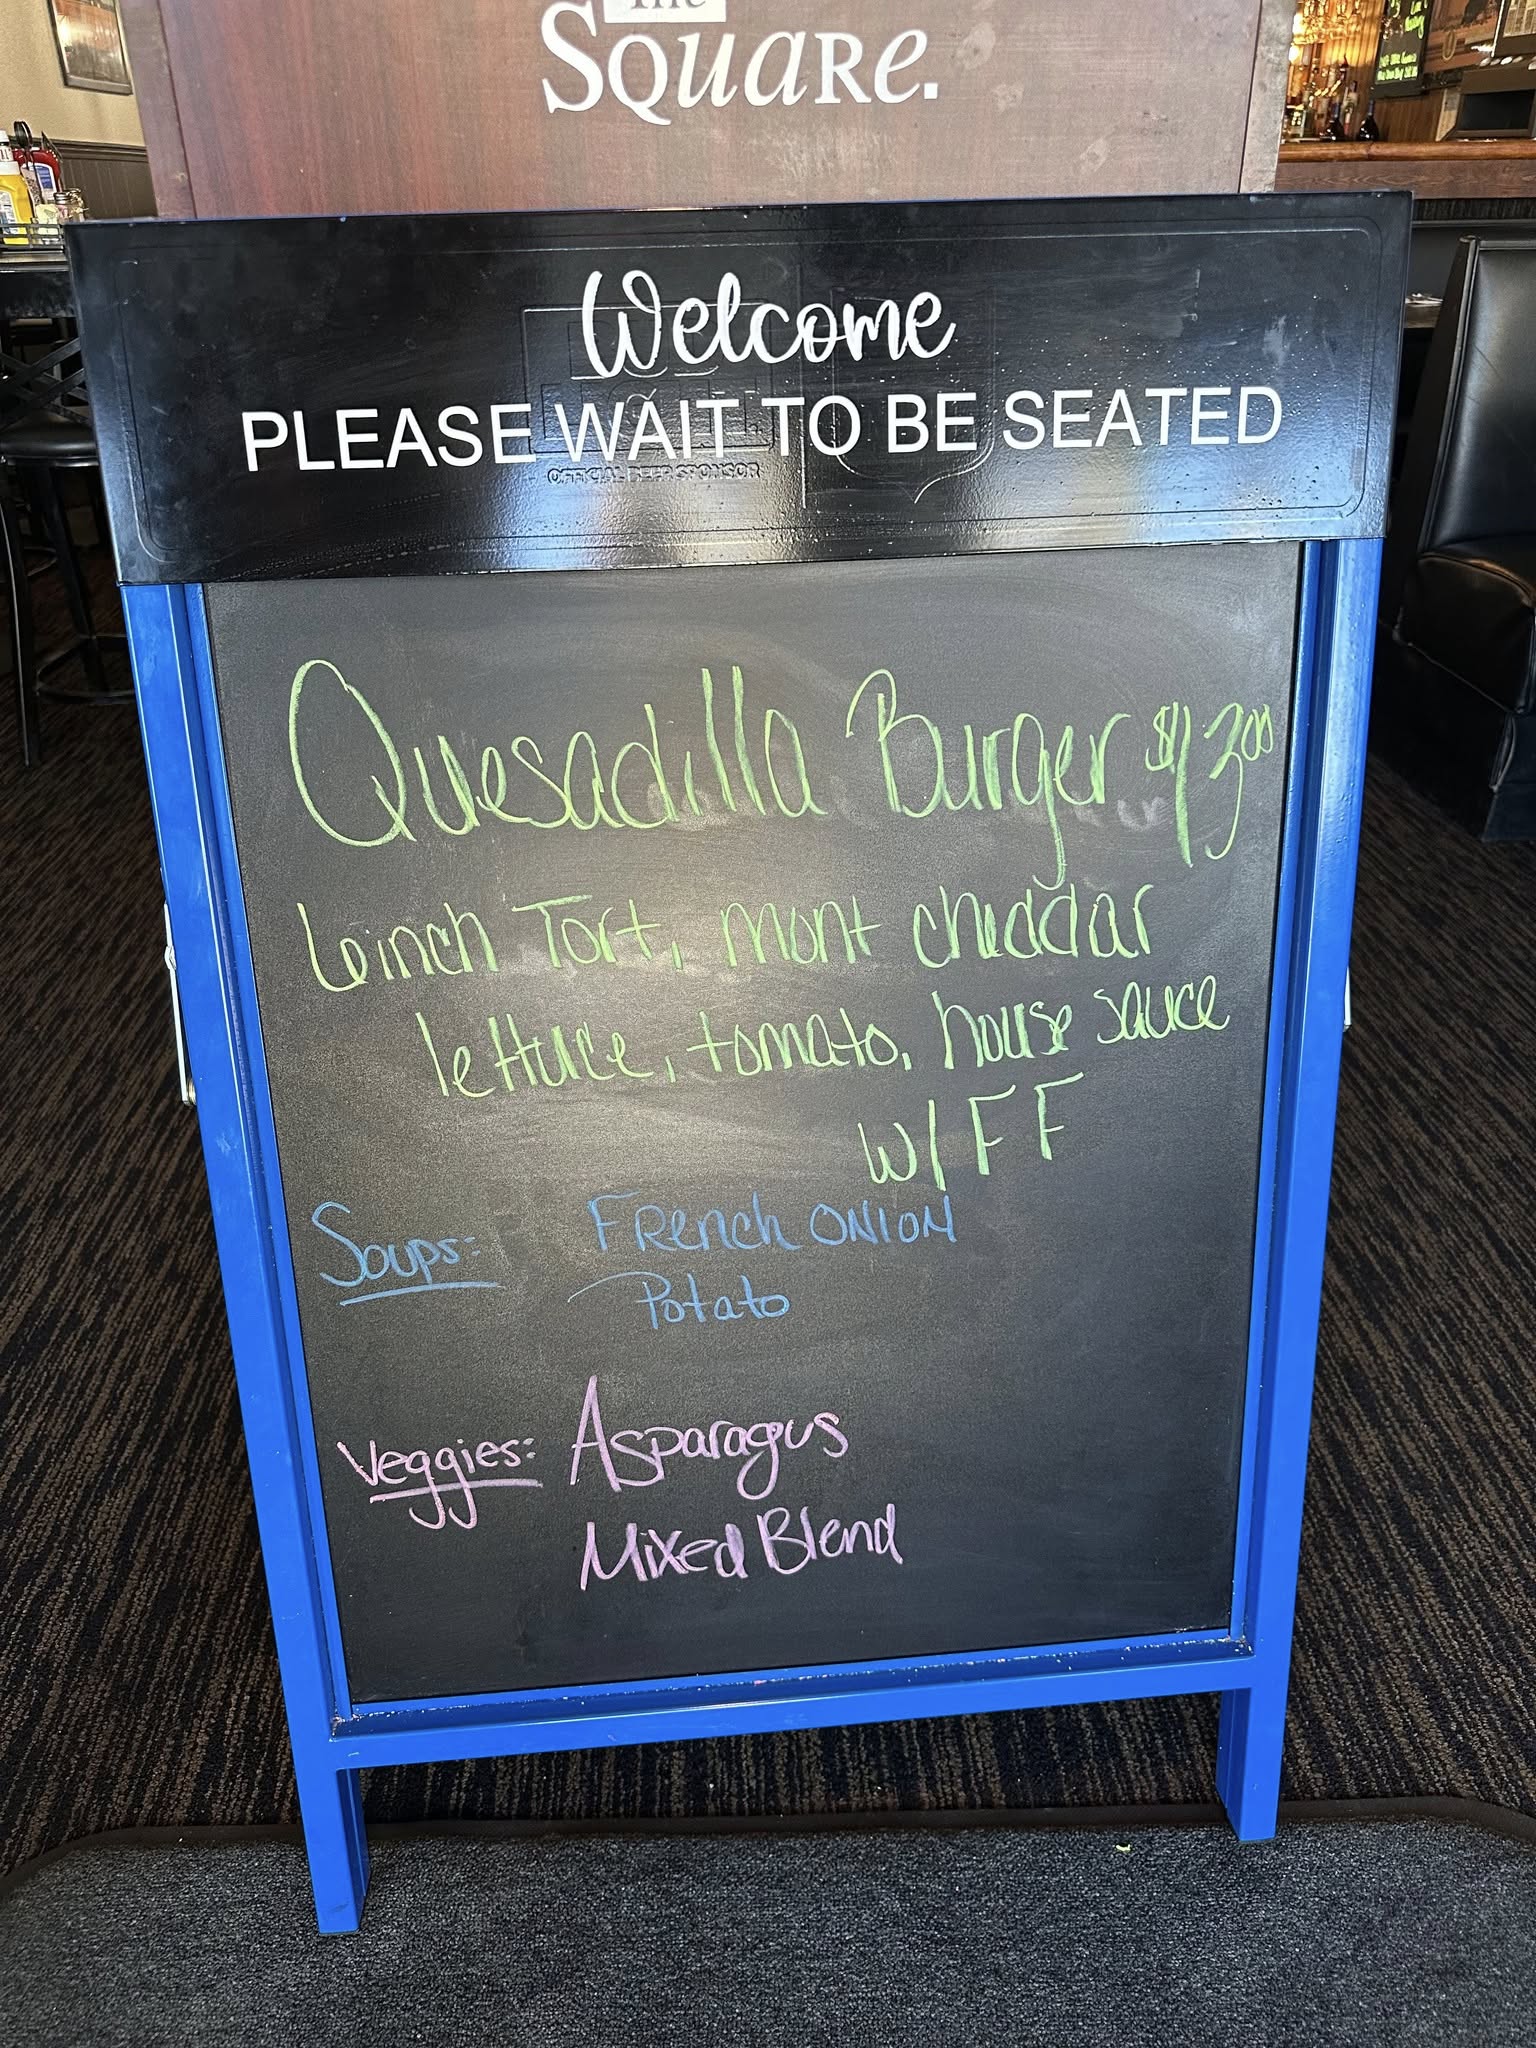 The
SQuaRe.
Welcome
PLEASE WAIT TO BE SEATED
OFFICIAL BEER SPONSOR
Quesadilla Burger $13.00
6einch Tort, mont cheddar
lettuce, tomato, house sauce
W/FF
Soups: FRench ONION
Potato
Veggies: Asparagus
Mixed Blend